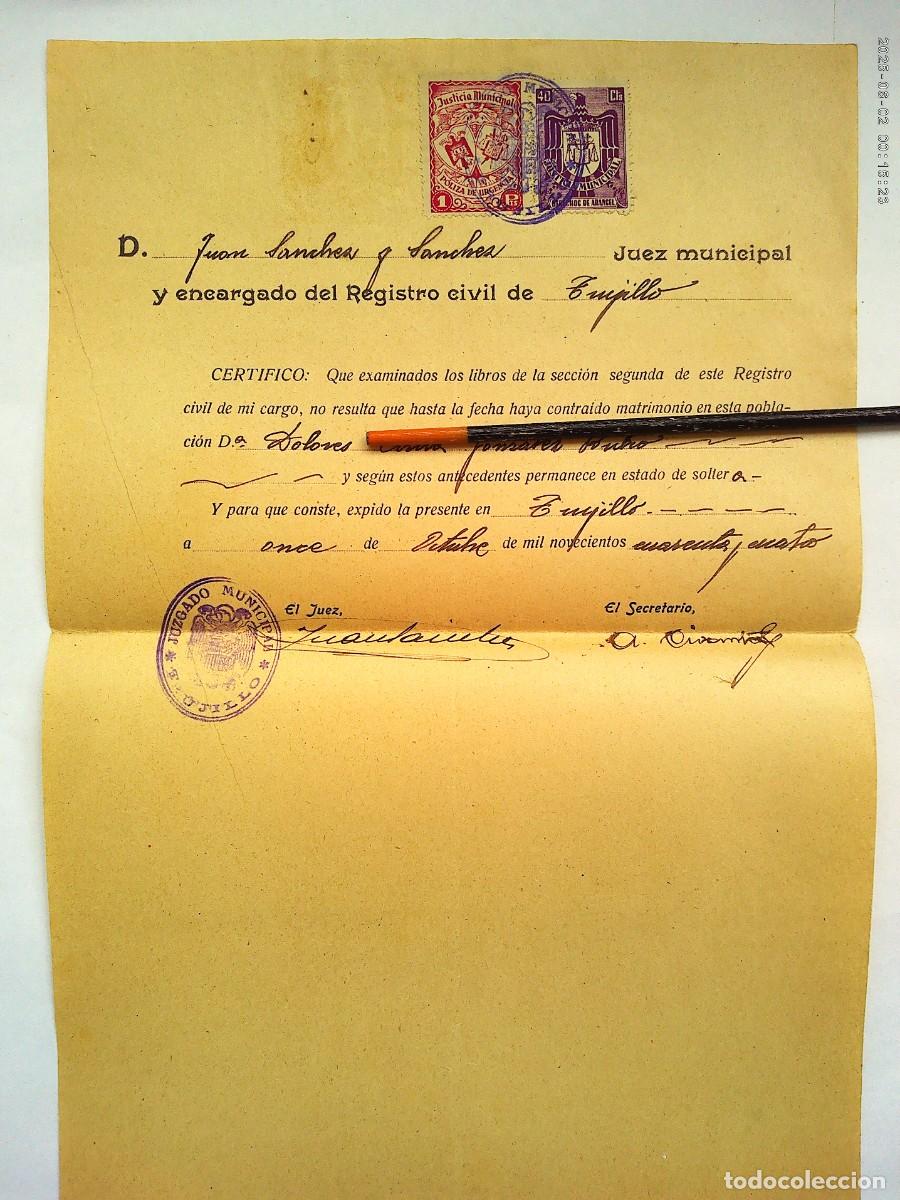 2025-08-02 00:15:23
Justicia Municipal
POLIZA DE URGENCIA
1 Pta
40 Cts
JUSTICIA MUNICIPAL
DERECHOS DE ARANCEL
D. Juan Sanchez y Sanchez Juez municipal
y encargado del Registro civil de Trujillo
CERTIFICO: Que examinados los libros de la sección segunda de este Registro
civil de mi cargo, no resulta que hasta la fecha haya contraído matrimonio en esta pobla-
ción D.ª Dolores Gonzalez Rubio
y según estos antecedentes permanece en estado de soltera-
Y para que conste, expido la presente en Trujillo
a once de Octubre de mil novecientos cuarenta y cuatro
El Juez, El Secretario,
Juan Sanchez
JUZGADO MUNICIPAL
TRUJILLO
todocoleccion